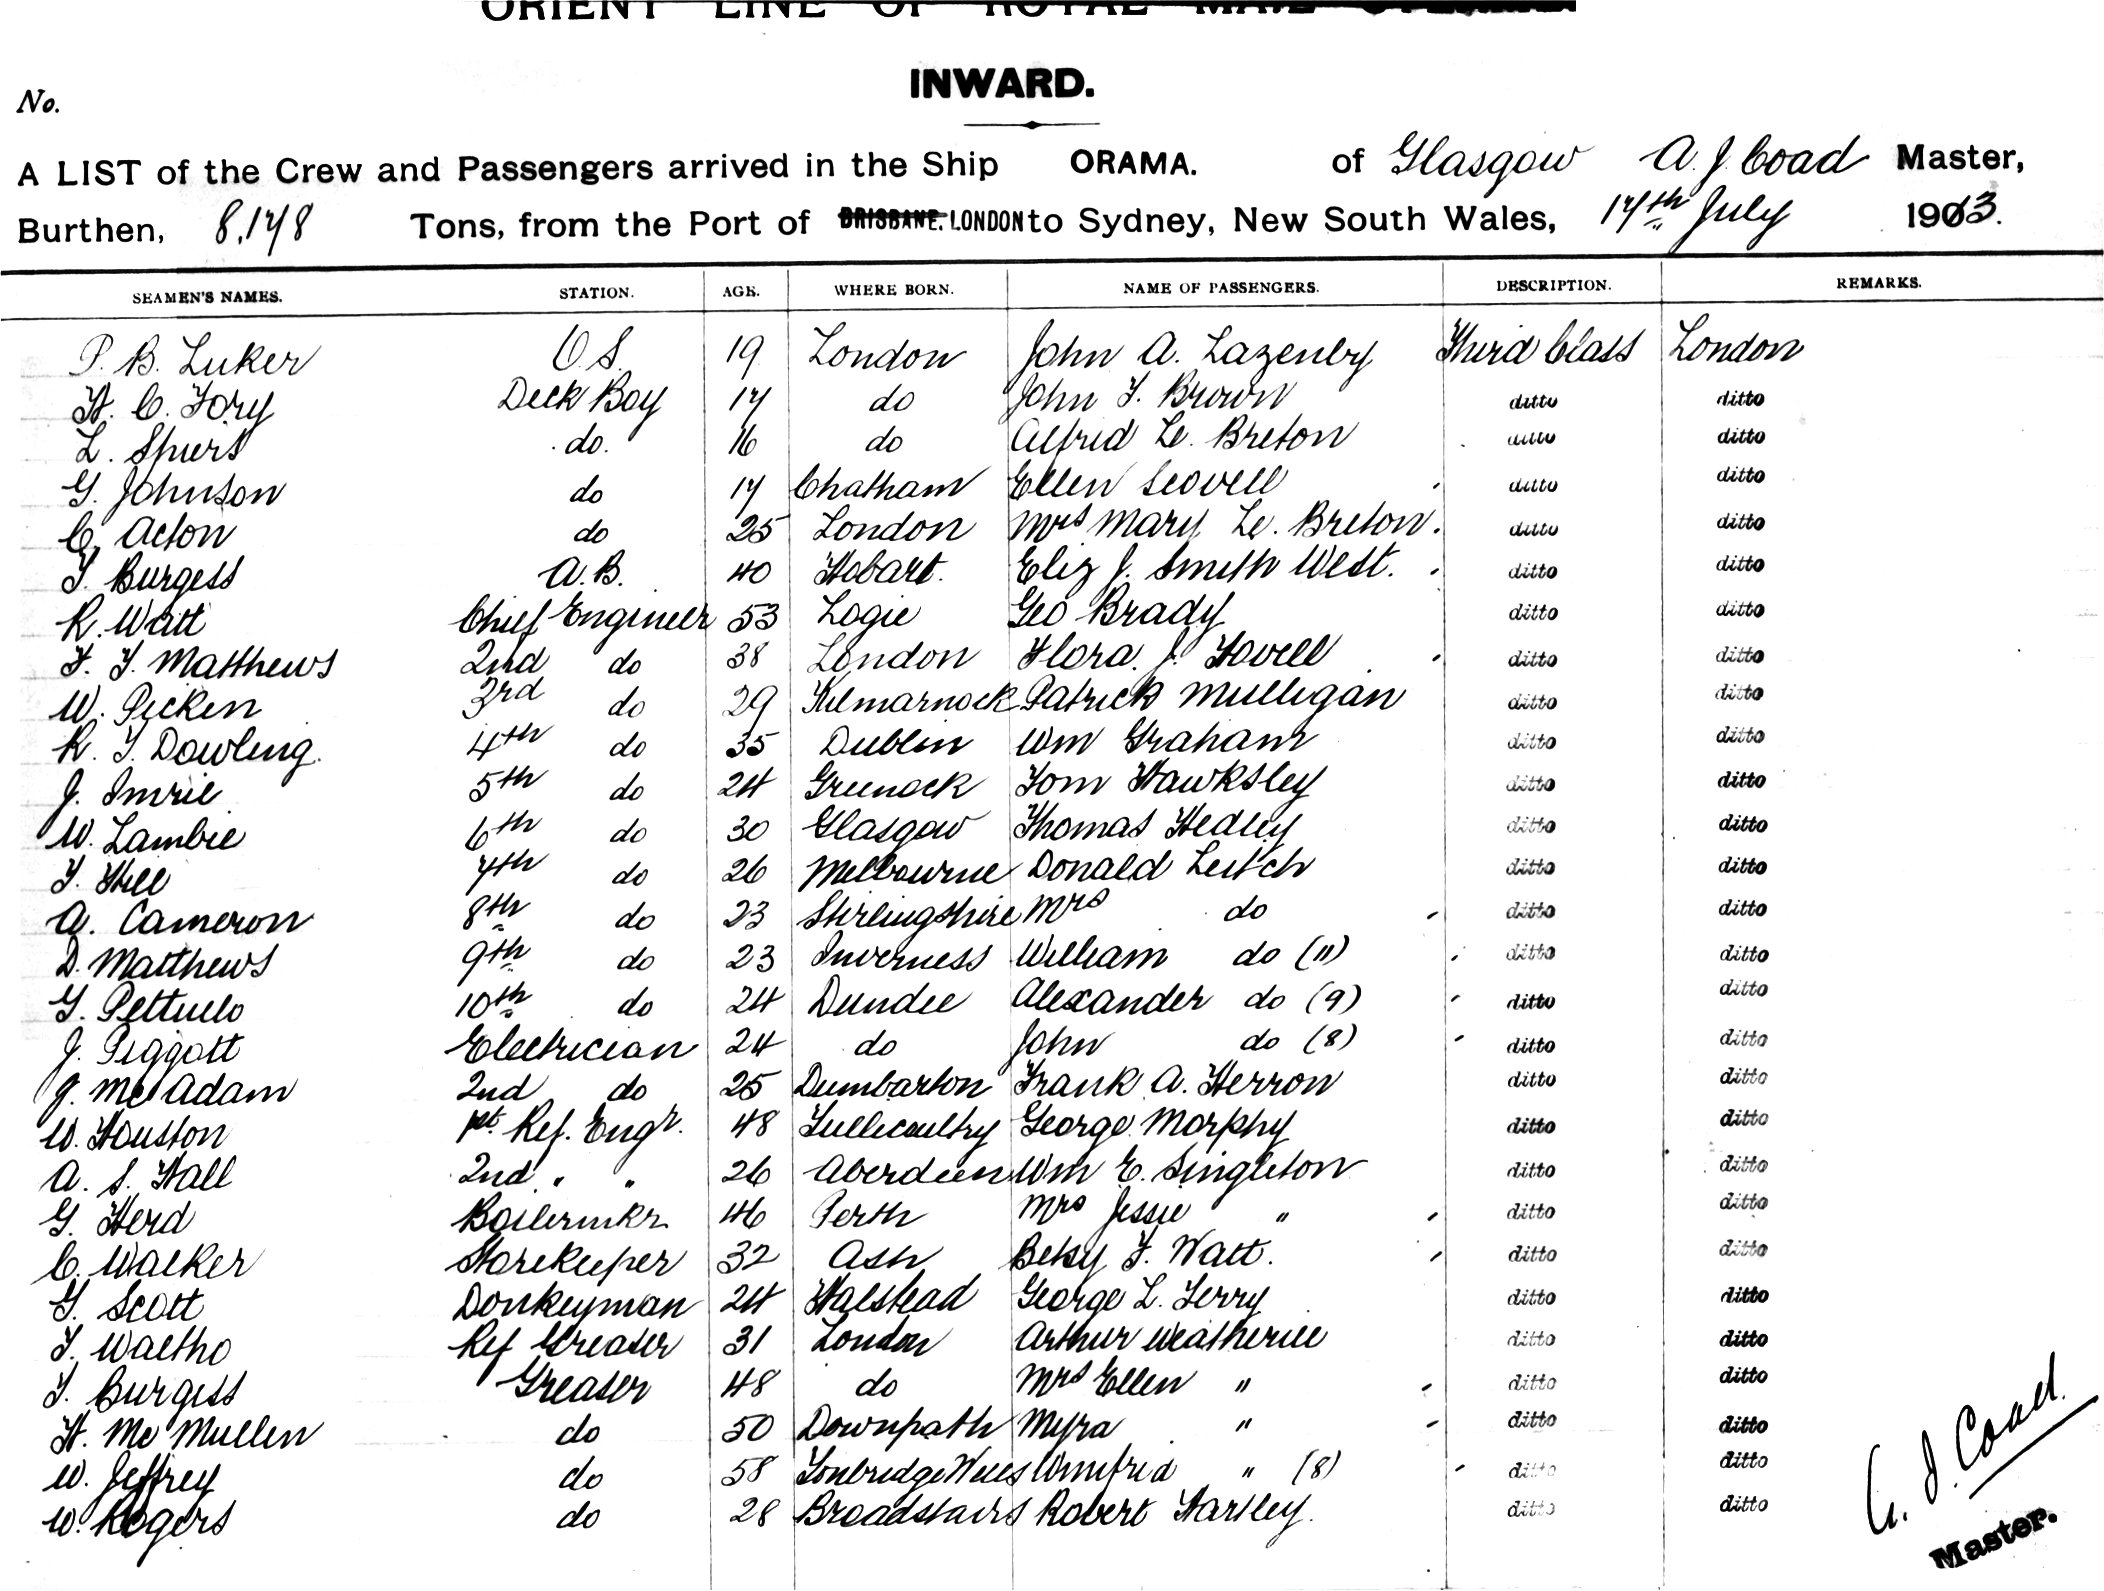 ORIENT LINE OF ROYAL MAIL
INWARD.
No.
A LIST of the Crew and Passengers arrived in the Ship ORAMA. of Glasgow A. J. Coad Master,
Burthen, 8,148 Tons, from the Port of BRISBANE. LONDON to Sydney, New South Wales, 14th July 1913.
SEAMEN'S NAMES. STATION. AGE. WHERE BORN. NAME OF PASSENGERS. DESCRIPTION. REMARKS.
P. B. Luker O.S. 19 London John A. Lazenby Third Class London
H. C. Tory Deck Boy 17 do John T. Brown ditto ditto
L. Spurs do. 16 do Alfred Le. Breton ditto ditto
G. Johnson do 17 Chatham Ellen Scovell ditto ditto
C. Acton do 25 London Mrs Mary Le. Breton. ditto ditto
T. Burgess A.B. 40 Hobart. Eliz J. Smith West. ditto ditto
R. Watt Chief Engineer 53 Logie Geo Brady ditto ditto
F. T. Matthews 2nd do 38 London Flora. J. Hovell ditto ditto
W. Picken 3rd do 29 Kilmarnock Patrick Mulligan ditto ditto
R. T. Dowling. 4th do 35 Dublin Wm Graham ditto ditto
J. Imrie 5th do 24 Greenock Tom Hawksley ditto ditto
W. Lambie 6th do 30 Glasgow Thomas Hedley ditto ditto
T. Hill 7th do 26 Melbourne Donald Leitch ditto ditto
A. Cameron 8th do 23 Stirlingshire Mrs do ditto ditto
D. Matthews 9th do 23 Inverness William do (11) ditto ditto
G. 10th do 24 Dundee Alexander do (9) ditto ditto
J. Piggott Electrician 24 do John do (8) ditto ditto
J. McAdam 2nd do 25 Dumbarton Frank A. Herron ditto ditto
W. Houston 1st Ref. Engr. 48 Tullicoultry George Morphy ditto ditto
A. S. Hall 2nd " " 26 Aberdeen Wm E. Singleton ditto ditto
G. Herd Boilermkr 46 Perth Mrs Jessie " ditto ditto
C. Walker Storekeeper 32 Ash Betsy F. Watt. ditto ditto
G. Scott Donkeyman 24 Halstead George L. Terry ditto ditto
T. Waltho Ref Greaser 31 London Arthur Weatherill ditto ditto
T. Burgess Greaser 48 do Mrs Ellen " ditto ditto
H. McMullen do 50 Downpath Myra " ditto ditto
W. Jeffrey do 58 Tonbridge Wells Winifrid " (8) ditto ditto
W. Rogers do 28 Broadstairs Robert Hartley. ditto ditto
A. J. Coad.
Master.